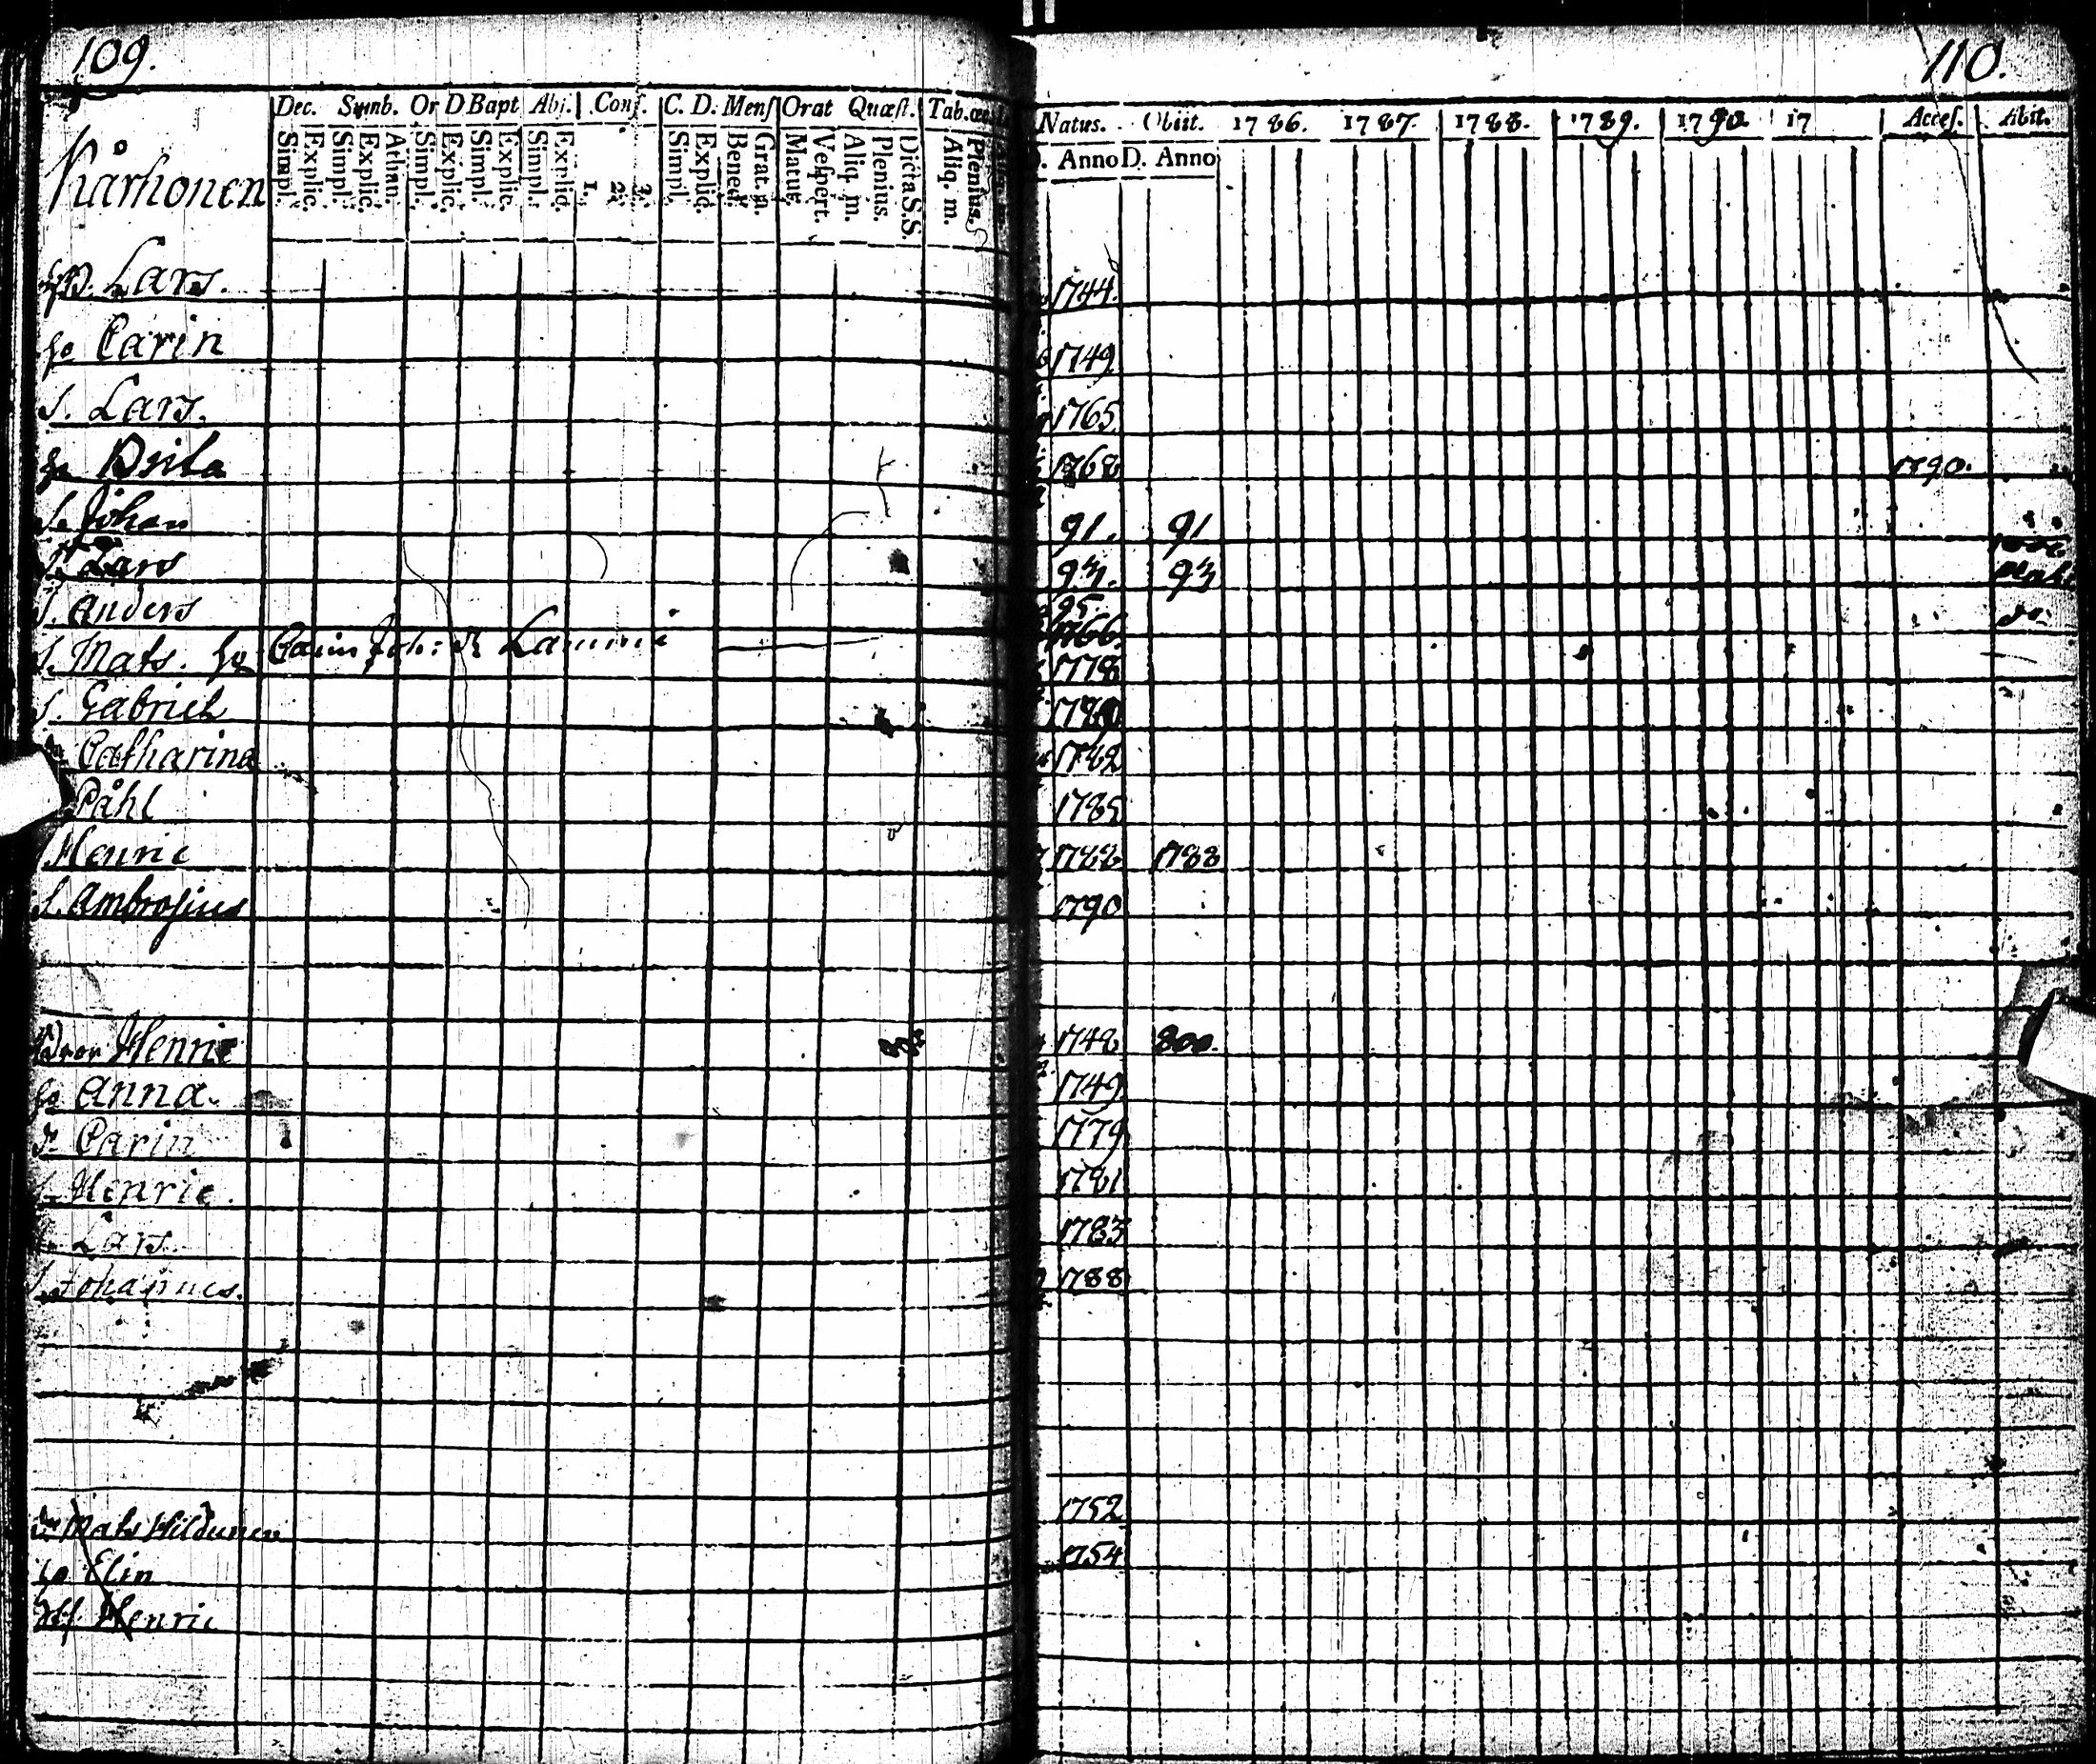 109.
Dec. Symb. Or D Bapt Abi. Conf. C. D. Mens Orat Quæst. Tab. œc
Simpl. Explic. Simpl. Explic. Athan. Simpl. Explic. Simpl. Explic. Simpl. Explic. 1. 2. 3. Simpl. Explic. Bened. Grat. a. Matut. Vespert. Aliq. m. Plenius. Dicta S.S. Aliq. m. Plenius.
Kårhonen
Lars.
ho Carin
S. Lars.
ho Brita
S. Johan
S. Lars
S. Anders
S. Mats. ho Carin Joh: dr Lammi
S. Gabriel
Catharina
Påhl
Henric
S. Ambrosius
Bror Henric
ho Anna.
Carin
S. Henric.
Lars
S. Johannes.
Mats Hildunen
ho Elin
Henric
110.
Natus. Obiit. 1786. 1787. 1788. 1789. 1790. 17 Acces. Abit.
D. Anno D. Anno
1744.
1749
1765
1768 1790.
91. 91
93. 93
95.
1766.
1778
1780
1782
1785
1788 1788
1790
1748 800.
1749
1779
1781
1783
1788
1752
1754